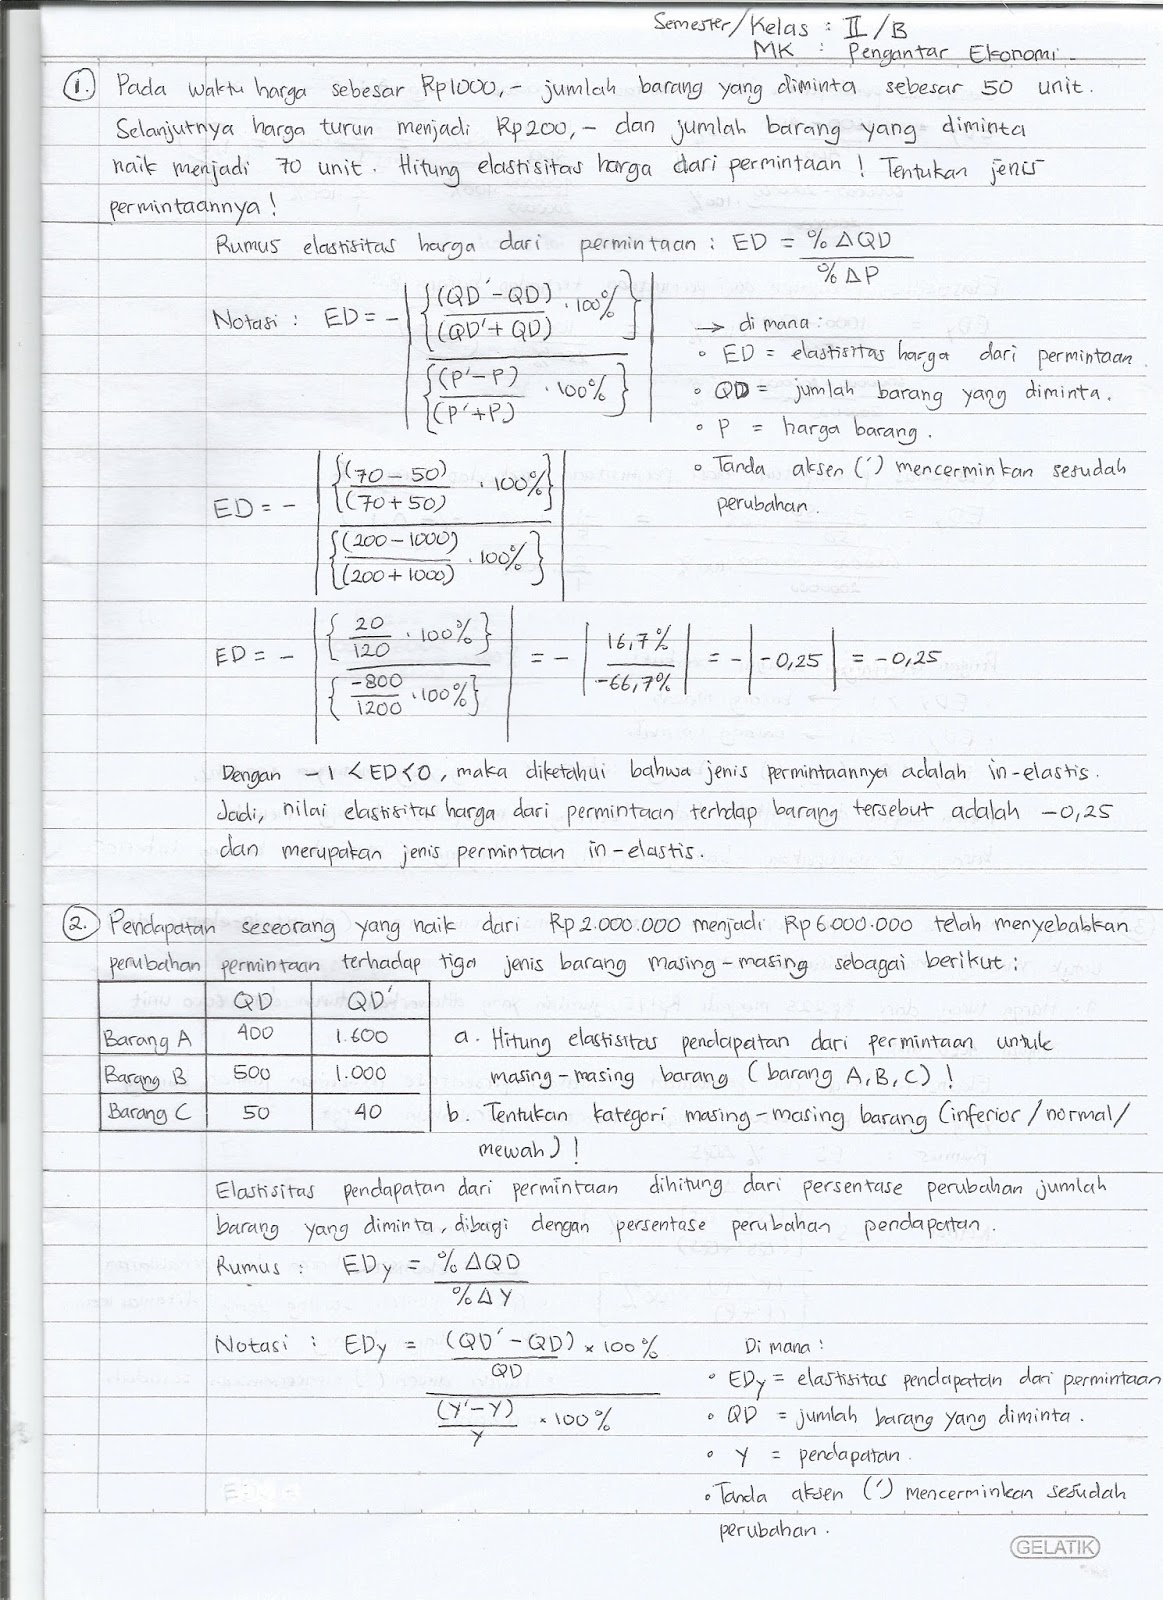 Semester/Kelas : II/B
MK : Pengantar Ekonomi
1. Pada waktu harga sebesar Rp1000,- jumlah barang yang diminta sebesar 50 unit.
Selanjutnya harga turun menjadi Rp200,- dan jumlah barang yang diminta
naik menjadi 70 unit. Hitung elastisitas harga dari permintaan! Tentukan jenis
permintaannya!
Rumus elastisitas harga dari permintaan : ED = %ΔQD
%ΔP
Notasi : ED = - | { (QD' - QD) . 100% }
(QD' + QD)
{ (P' - P) . 100% } |
(P' + P)
→ di mana :
• ED = elastisitas harga dari permintaan
• QD = jumlah barang yang diminta.
• P = harga barang.
• Tanda aksen (') mencerminkan sesudah
perubahan.
ED = - | { (70 - 50) . 100% }
(70 + 50)
{ (200 - 1000) . 100% } |
(200 + 1000)
ED = - | { 20 . 100% } | = - | 16,7% | = - | -0,25 | = -0,25
120
{ -800 . 100% } -66,7%
1200
Dengan -1 < ED < 0, maka diketahui bahwa jenis permintaannya adalah in-elastis.
Jadi, nilai elastisitas harga dari permintaan terhdap barang tersebut adalah -0,25
dan merupakan jenis permintaan in-elastis.
2. Pendapatan seseorang yang naik dari Rp2.000.000 menjadi Rp6.000.000 telah menyebabkan
perubahan permintaan terhadap tiga jenis barang masing-masing sebagai berikut :
QD QD'
Barang A 400 1.600
Barang B 500 1.000
Barang C 50 40
a. Hitung elastisitas pendapatan dari permintaan untuk
masing-masing barang (barang A, B, C)!
b. Tentukan kategori masing-masing barang (inferior/normal/
mewah)!
Elastisitas pendapatan dari permintaan dihitung dari persentase perubahan jumlah
barang yang diminta, dibagi dengan persentase perubahan pendapatan.
Rumus : EDy = %ΔQD
%ΔY
Notasi : EDy = (QD' - QD) × 100%
QD
(Y' - Y) × 100%
Y
Di mana :
• EDy = elastisitas pendapatan dari permintaan
• QD = jumlah barang yang diminta.
• Y = pendapatan.
• Tanda aksen (') mencerminkan sesudah
perubahan.
GELATIK